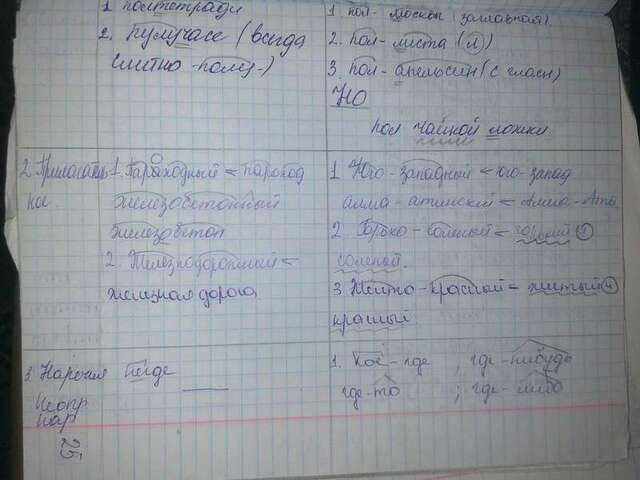 1. полтетради
2. полчаса (всегда
слитно -полу-)
1 пол- Москвы (заглавная).
2. пол- листа (л)
3. пол- апельсин (с гласн)
НО
пол чайной ложки
2. Прилагатель 1. Пароходный < пароход
ное. железобетонный
железобетон
2. Железнодорожный <
железная дорога
1 Юго-западный < юго-запад
алма-атинский < Алма-Ата
2. Горько-солёный < горький
солёный.
3. Желто-красный = желтый
красный.
3. Наречия нигде
Неопр
нар
1. Кое-где ; где-нибудь
где-то ; где-либо
25